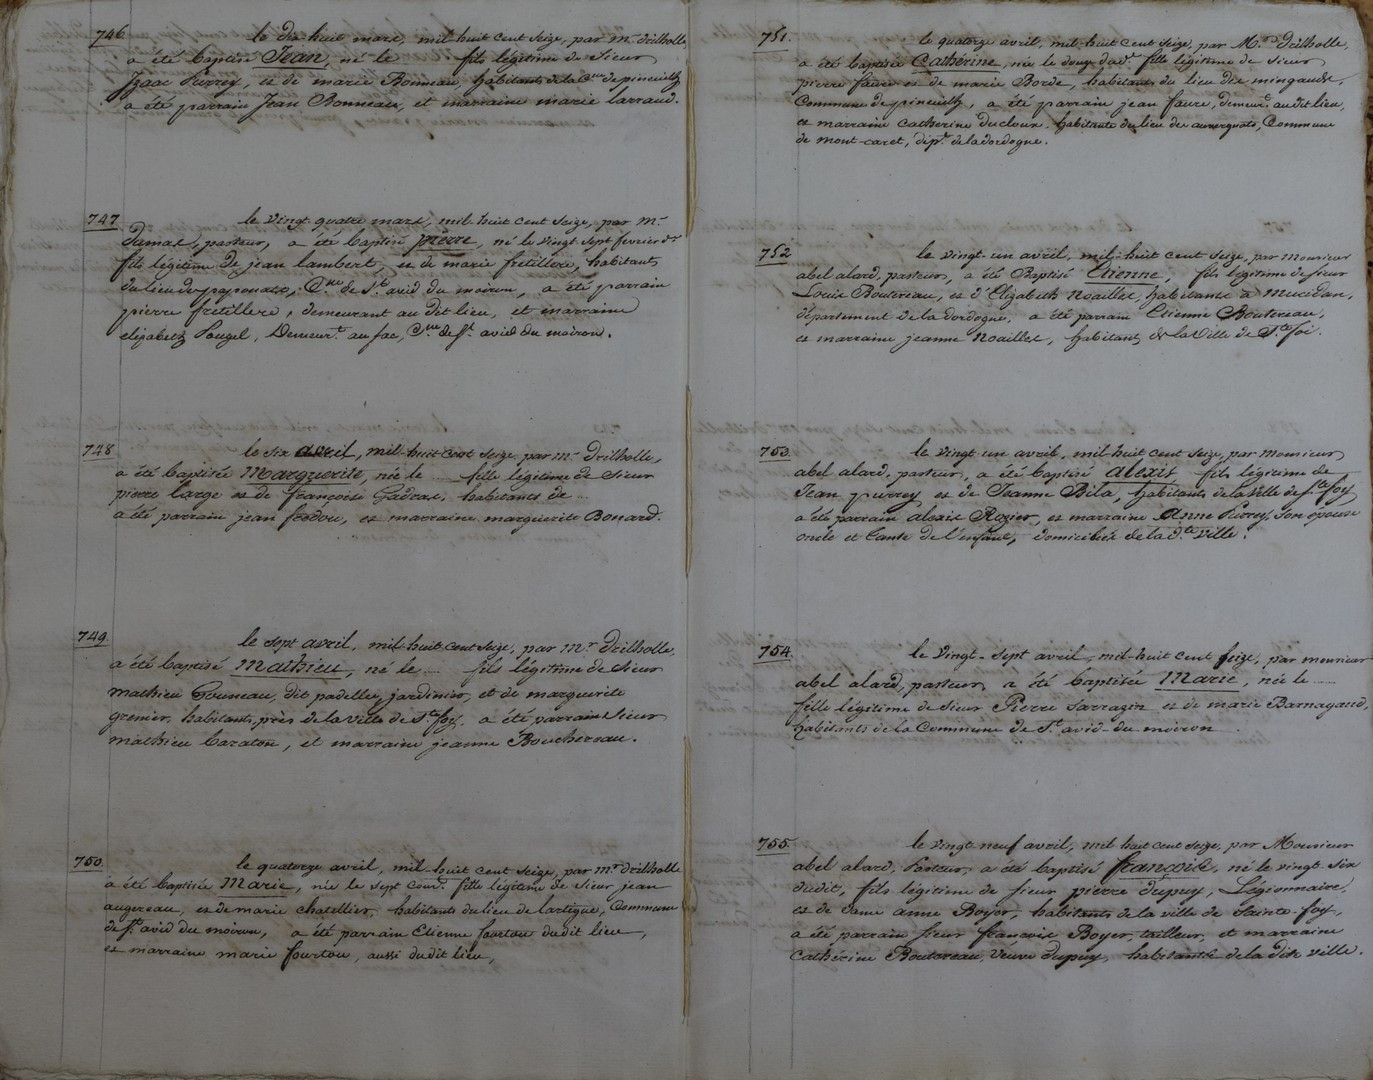 746
le dix-huit mars, mil-huit cent seize, par mr. drilholle,
a été baptisé Jean, né le fils légitime de Sieur
Izaac Pierrey, et de marie Bonneau, habitants de la Cne. de pineuilh
a été parrain Jean Bonneau, et marraine marie larraud.
747
le vingt quatre mars, mil-huit cent seize, par mr.
dumas, pasteur, a été baptisé pierre, né le vingt sept fevrier dr.
fils légitime de jean lambert, et de marie fretillere, habitants
du lieu des Cne. de St. avid du moiron, a été parrain
pierre fretillere, demeurant au dit lieu, et marraine
elizabeth Pougel, Demeurt. au fac, Cne. de St. avid du moiron.
748
le six avril, mil-huit cent seize, par mr. drilholle,
a été baptisée Marguerite, née le .... fille légitime de Sieur
pierre large et de françoise Gadras, habitants de ...
a été parrain jean et marraine marguerite Bonard.
749.
le sept avril, mil-huit cent seize, par mr. drilholle,
a été baptisé Mathieu, né le .... fils légitime de Sieur
mathieu Gouneau, dit padelle, jardinier, et de marguerite
grenier, habitants, près de la ville de Ste foy, a été parrain Sieur
mathieu baraton, et marraine jeanne Bouchereau.
750
le quatorze avril, mil-huit cent seize, par mr. drilholle
a été baptisée Marie, née le sept cour. fille légitime de Sieur jean
augereau, et de marie chatellier, habitants du lieu de lartigue, Commune
de St. avid du moiron, a été parrain Etienne fourtou du dit lieu,
et marraine marie fourtou, aussi du dit lieu,
751.
le quatorze avril, mil-huit cent seize, par Mr. Drilholle,
a été baptisée Catherine, née le douze dud. fille légitime de Sieur
pierre faure et de marie Borde, habitants du lieu des mingauds,
Commune de pineuilh, a été parrain jean faure, demeurt. au dit lieu,
et marraine Catherine ducloux, habitante du lieu des auvergnats, Commune
de mont-caret, dépt. de la dordogne.
752
le vingt-un avril, mil-huit cent seize, par monsieur
abel alard, pasteur, a été Baptisé Etienne, fils légitime de sieur
Louis Boutereau, et d'Elizabeth Noaillet, habitants à Mucidan,
département de la dordogne, a été parrain Etienne Boutereau,
et marraine jeanne Noaillet, habitants de la Ville de Ste foi.
753.
le vingt un avril, mil-huit cent seize, par monsieur
abel alard, pasteur, a été baptisé alexis fils légitime de
Jean purrey et de Jeanne Bila, habitants de la Ville de Ste foy
a été parrain alexis Rozier, et marraine Anne Purrey, son épouse
oncle et tante de l'enfant, domiciliés de la d.te ville.
754.
le Vingt-sept avril, mil-huit cent seize, par monsieur
abel alard, pasteur, a été baptisée Marie, née le ......
fille légitime de sieur Pierre Sarrazin et de marie Barnagaud,
habitants de la Commune de St. avid-du moiron.
755.
le vingt neuf avril, mil huit cent seize, par Monsieur
abel alard, Pasteur, a été baptisé françois, né le vingt six
dudit, fils légitime de sieur pierre dupuy, Légionnaire,
et de dame anne Boyer, habitants de la ville de Sainte-foy,
a été parrain sieur françois Boyer, tailleur, et marraine
Catherine Boutereau, veuve dupuy, habitants de la dite ville.